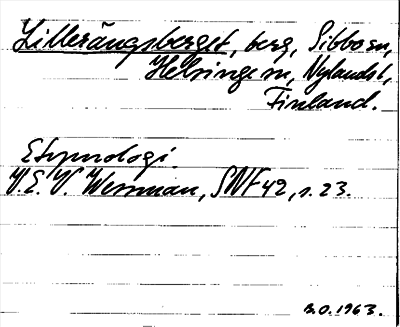 Lillerängsberget, berg, Sibbo sn,
Helsinge sn, Nylands l,
Finland.
Etymologi.
V.E.V. Wessman, SNF 42, s. 23.
B.O. 1963.